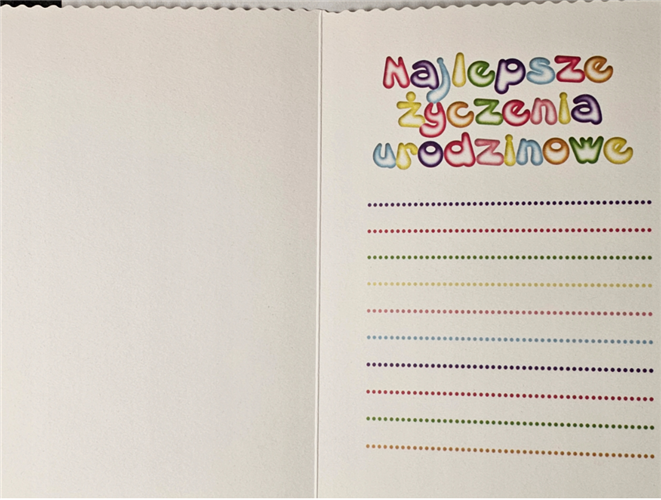 Najlepsze
życzenia
urodzinowe